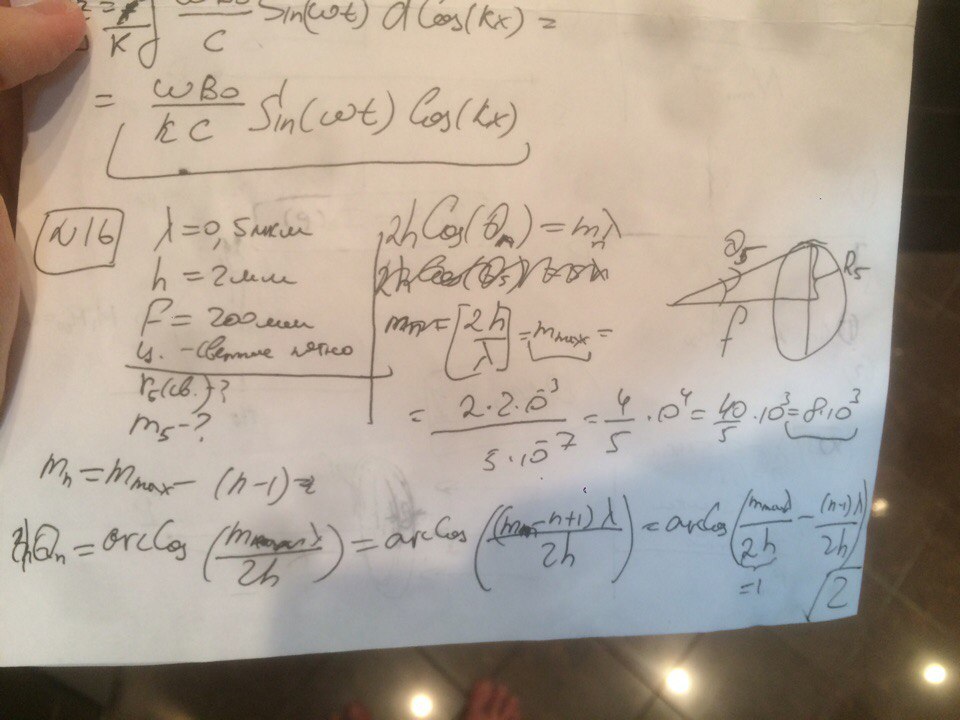 K ∫ ωB₀/C Sin(ωt) d Cos(kx) =
= ωB₀/(kC) Sin(ωt) Cos(kx)
N16
λ = 0,5мкм
h = 2мм
f = 200мм
ц. - светлое пятно
r₅(св.)-?
m₅-?
2h Cos(θₙ) = mₙλ
= [2h/λ] = m_max =
= 2·2·10⁻³/(5·10⁻⁷) = 4/5·10⁴ = 40/5·10³ = 8·10³
θ₅
R₅
f
mₙ = m_max - (n-1) =
θₙ = arcCos(λ/2h) = arcCos((m-n+1)λ/2h) = arcCos(m_maxλ/2h - (n-1)λ/2h)
=1
2